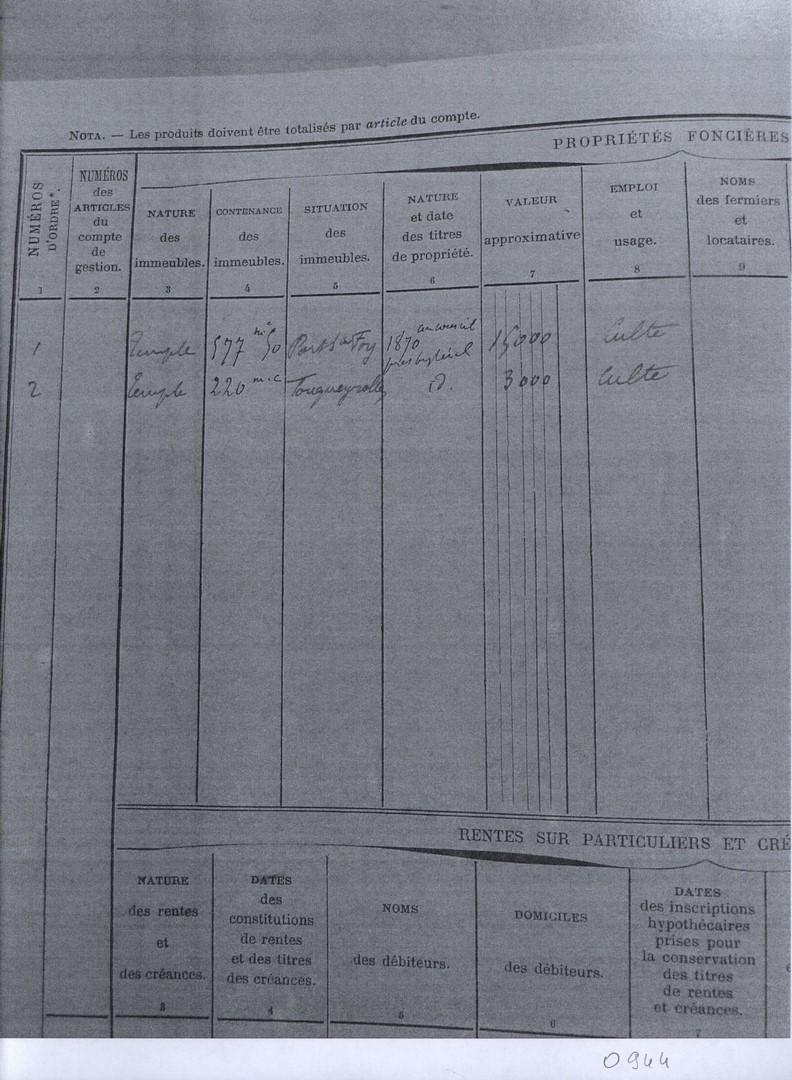 NOTA. — Les produits doivent être totalisés par article du compte.
PROPRIÉTÉS FONCIÈRES
NUMÉROS D'ORDRE*.
1
NUMÉROS
des
ARTICLES
du
compte
de
gestion.
2
NATURE
des
immeubles.
3
CONTENANCE
des
immeubles.
4
SITUATION
des
immeubles.
5
NATURE
et date
des titres
de propriété.
6
VALEUR
approximative
7
EMPLOI
et
usage.
8
NOMS
des fermiers
et
locataires.
9
1 Temple 577 50 Port Ste Foy 1870 presbytéral 15000 Culte
2 Temple 220 m.c Touqueyrolles id. 3000 Culte
RENTES SUR PARTICULIERS ET CRÉ
NATURE
des rentes
et
des créances.
3
DATES
des
constitutions
de rentes
et des titres
des créances.
4
NOMS
des débiteurs.
5
DOMICILES
des débiteurs.
6
DATES
des inscriptions
hypothécaires
prises pour
la conservation
des titres
de rentes
et créances.
7
0944